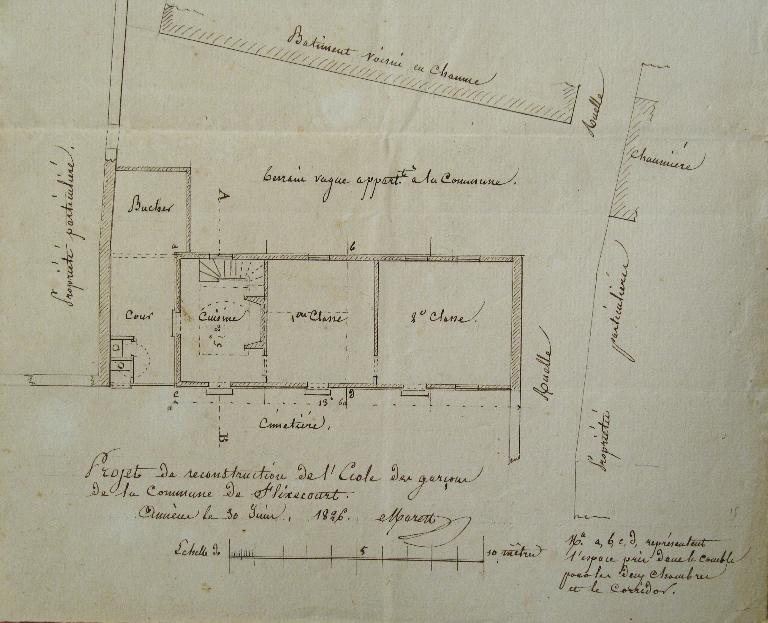 Batiment voisin en Chaume
Ruelle
Chaumière
Propriété particulière.
Terrain vague appart.te a la Commune.
Bucher
A
a
b
Cour
Cuisine
1ere Classe
2e Classe.
Ruelle
Propriété particulière
c
d
13m 60
Cimetière.
B
Projet de reconstruction de l'Ecole des garçons
de la Commune de Flixecourt.
Amiens le 30 Juin, 1826.
Echelle de
5
10 mètres
Na a, b, c, d, représentent
l'espace pris dans le Comble
pour les deux Chambres
et le Corridor.